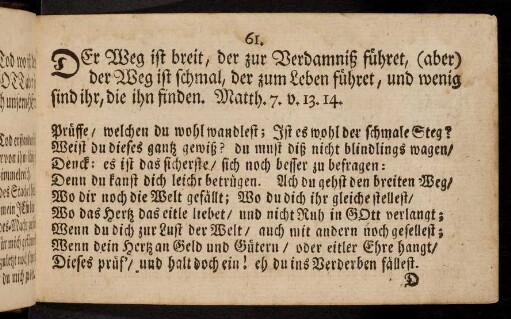 61.
DEr Weg ist breit, der zur Verdamniß führet, (aber)
der Weg ist schmal, der zum Leben führet, und wenig
sind ihr, die ihn finden. Matth. 7. v. 13. 14.
Prüffe / welchen du wohl wandlest; Ist es wohl der schmale Steg?
Weist du dieses gantz gewiß? du must diß nicht blindlings wagen /
Denck: es ist das sicherste / sich noch besser zu befragen:
Denn du kanst dich leicht betrügen. Ach du gehst den breiten Weg /
Wo dir noch die Welt gefällt; Wo du dich ihr gleiche stellest /
Wo das Hertz das eitle liebet / und nicht Ruh in GOtt verlangt;
Wenn du dich zur Lust der Welt / auch mit andern noch gesellest;
Wenn dein Hertz an Geld und Gütern / oder eitler Ehre hangt /
Dieses prüf / und halt doch ein! eh du ins Verderben fällest.
D